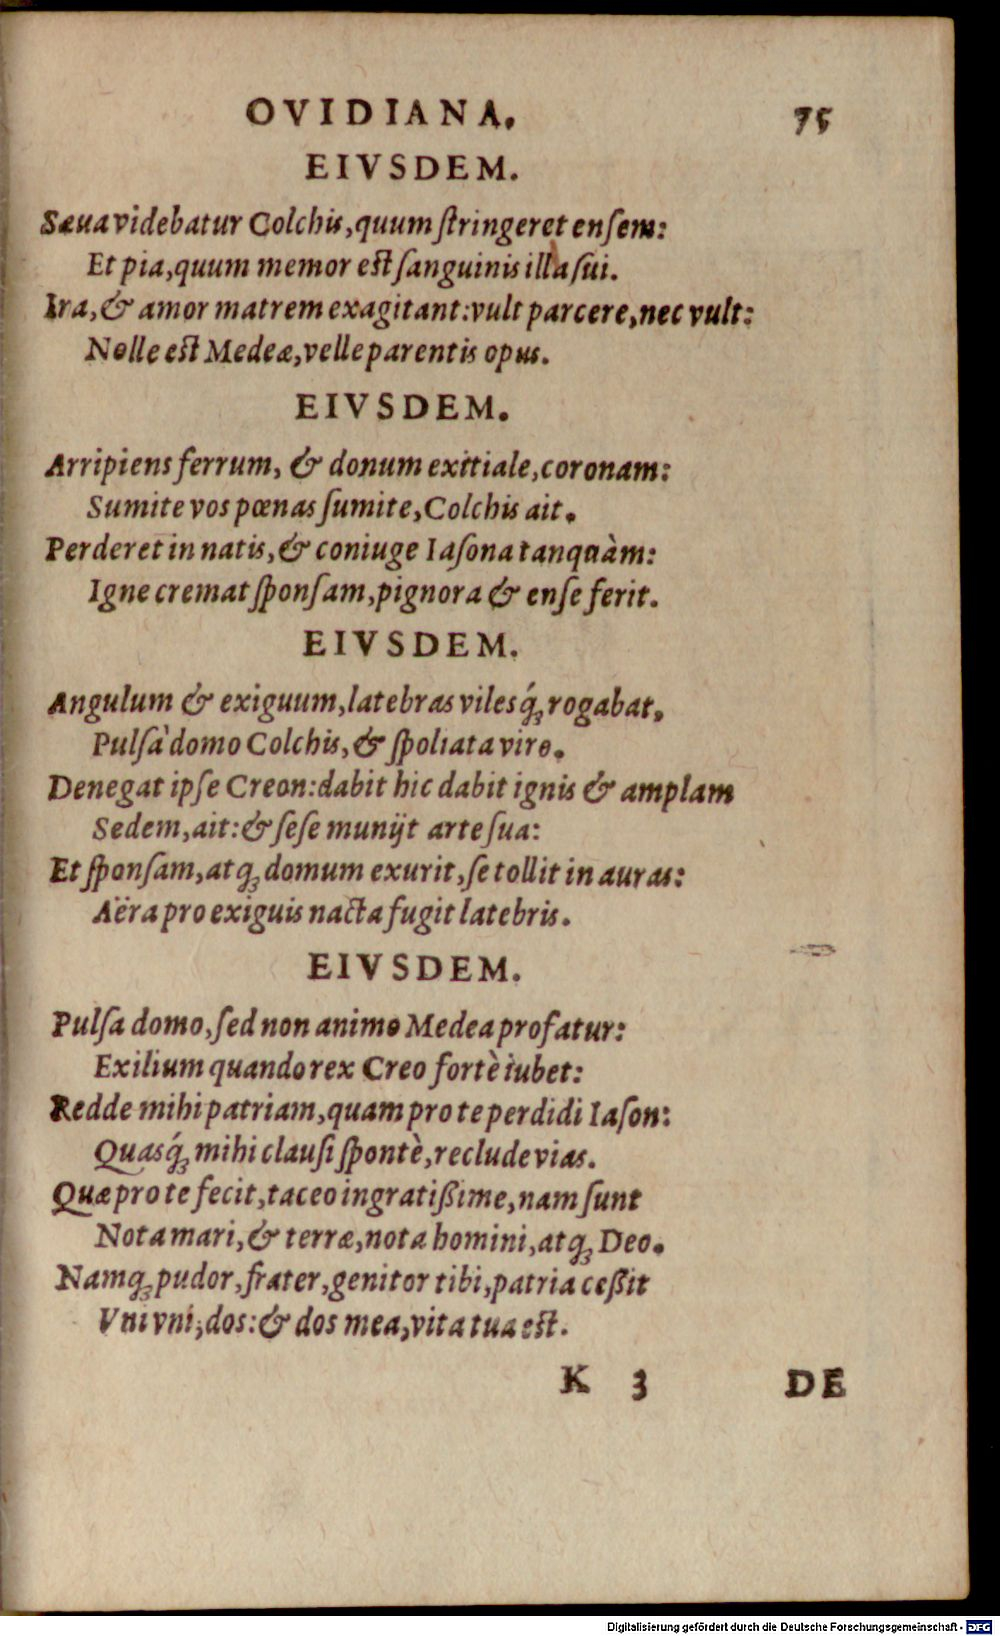 OVIDIANA. 75
EIVSDEM.
Sæua videbatur Colchis, quum ſtringeret enſem:
Et pia, quum memor eſt ſanguinis illa ſui.
Ira, & amor matrem exagitant: vult parcere, nec vult:
Nolle eſt Medeæ, velle parentis opus.
EIVSDEM.
Arripiens ferrum, & donum exitiale, coronam:
Sumite vos pœnas ſumite, Colchis ait.
Perderet in natis, & coniuge Iaſona tanquàm:
Igne cremat ſponſam, pignora & enſe ferit.
EIVSDEM.
Angulum & exiguum, latebras vilesq́ꝫ rogabat,
Pulſa domo Colchis, & ſpoliata viro.
Denegat ipſe Creon: dabit hic dabit ignis & amplam
Sedem, ait: & ſeſe munijt arte ſua:
Et ſponſam, atqꝫ domum exurit, ſe tollit in auras:
Aëra pro exiguis nacta fugit latebris.
EIVSDEM.
Pulſa domo, ſed non animo Medea profatur:
Exilium quando rex Creo fortè iubet:
Redde mihi patriam, quam pro te perdidi Iaſon:
Quasq́ꝫ mihi clauſi ſpontè, reclude vias.
Quæ pro te fecit, taceo ingratißime, nam ſunt
Nota mari, & terræ, nota homini, atqꝫ Deo.
Namqꝫ pudor, frater, genitor tibi, patria ceßit
Vni vni, dos: & dos mea, vita tua eſt.
K 3 DE
Digitalisierung gefördert durch die Deutsche Forschungsgemeinschaft - DFG